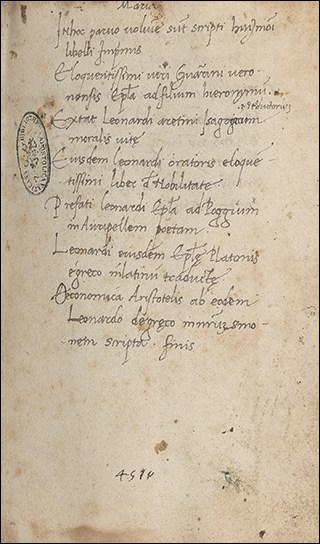 Maria
In hoc parvo volumĩe sũt scripti huiusmõi
libelli Inprimis
Eloquentissimi viri Guarini vero-
nensis Epl̃a ad filium hieronymũ.
Extat Leonardi aretini Isagogicum
moralis vite
Eiusdem leonardi oratoris eloque-
tissimi liber d̃ Nobilitate
Prefati leonardi Epl̃a ad Poggium
in Aurispellem poetam.
Leonardi eiusdem Epl̃ę Platonis
egreco in latinũ traductę
Aeconomica Aristotelis ab eodem
Leonardo de gręco in nr̃uz smo-
nem scripta. finis
4510